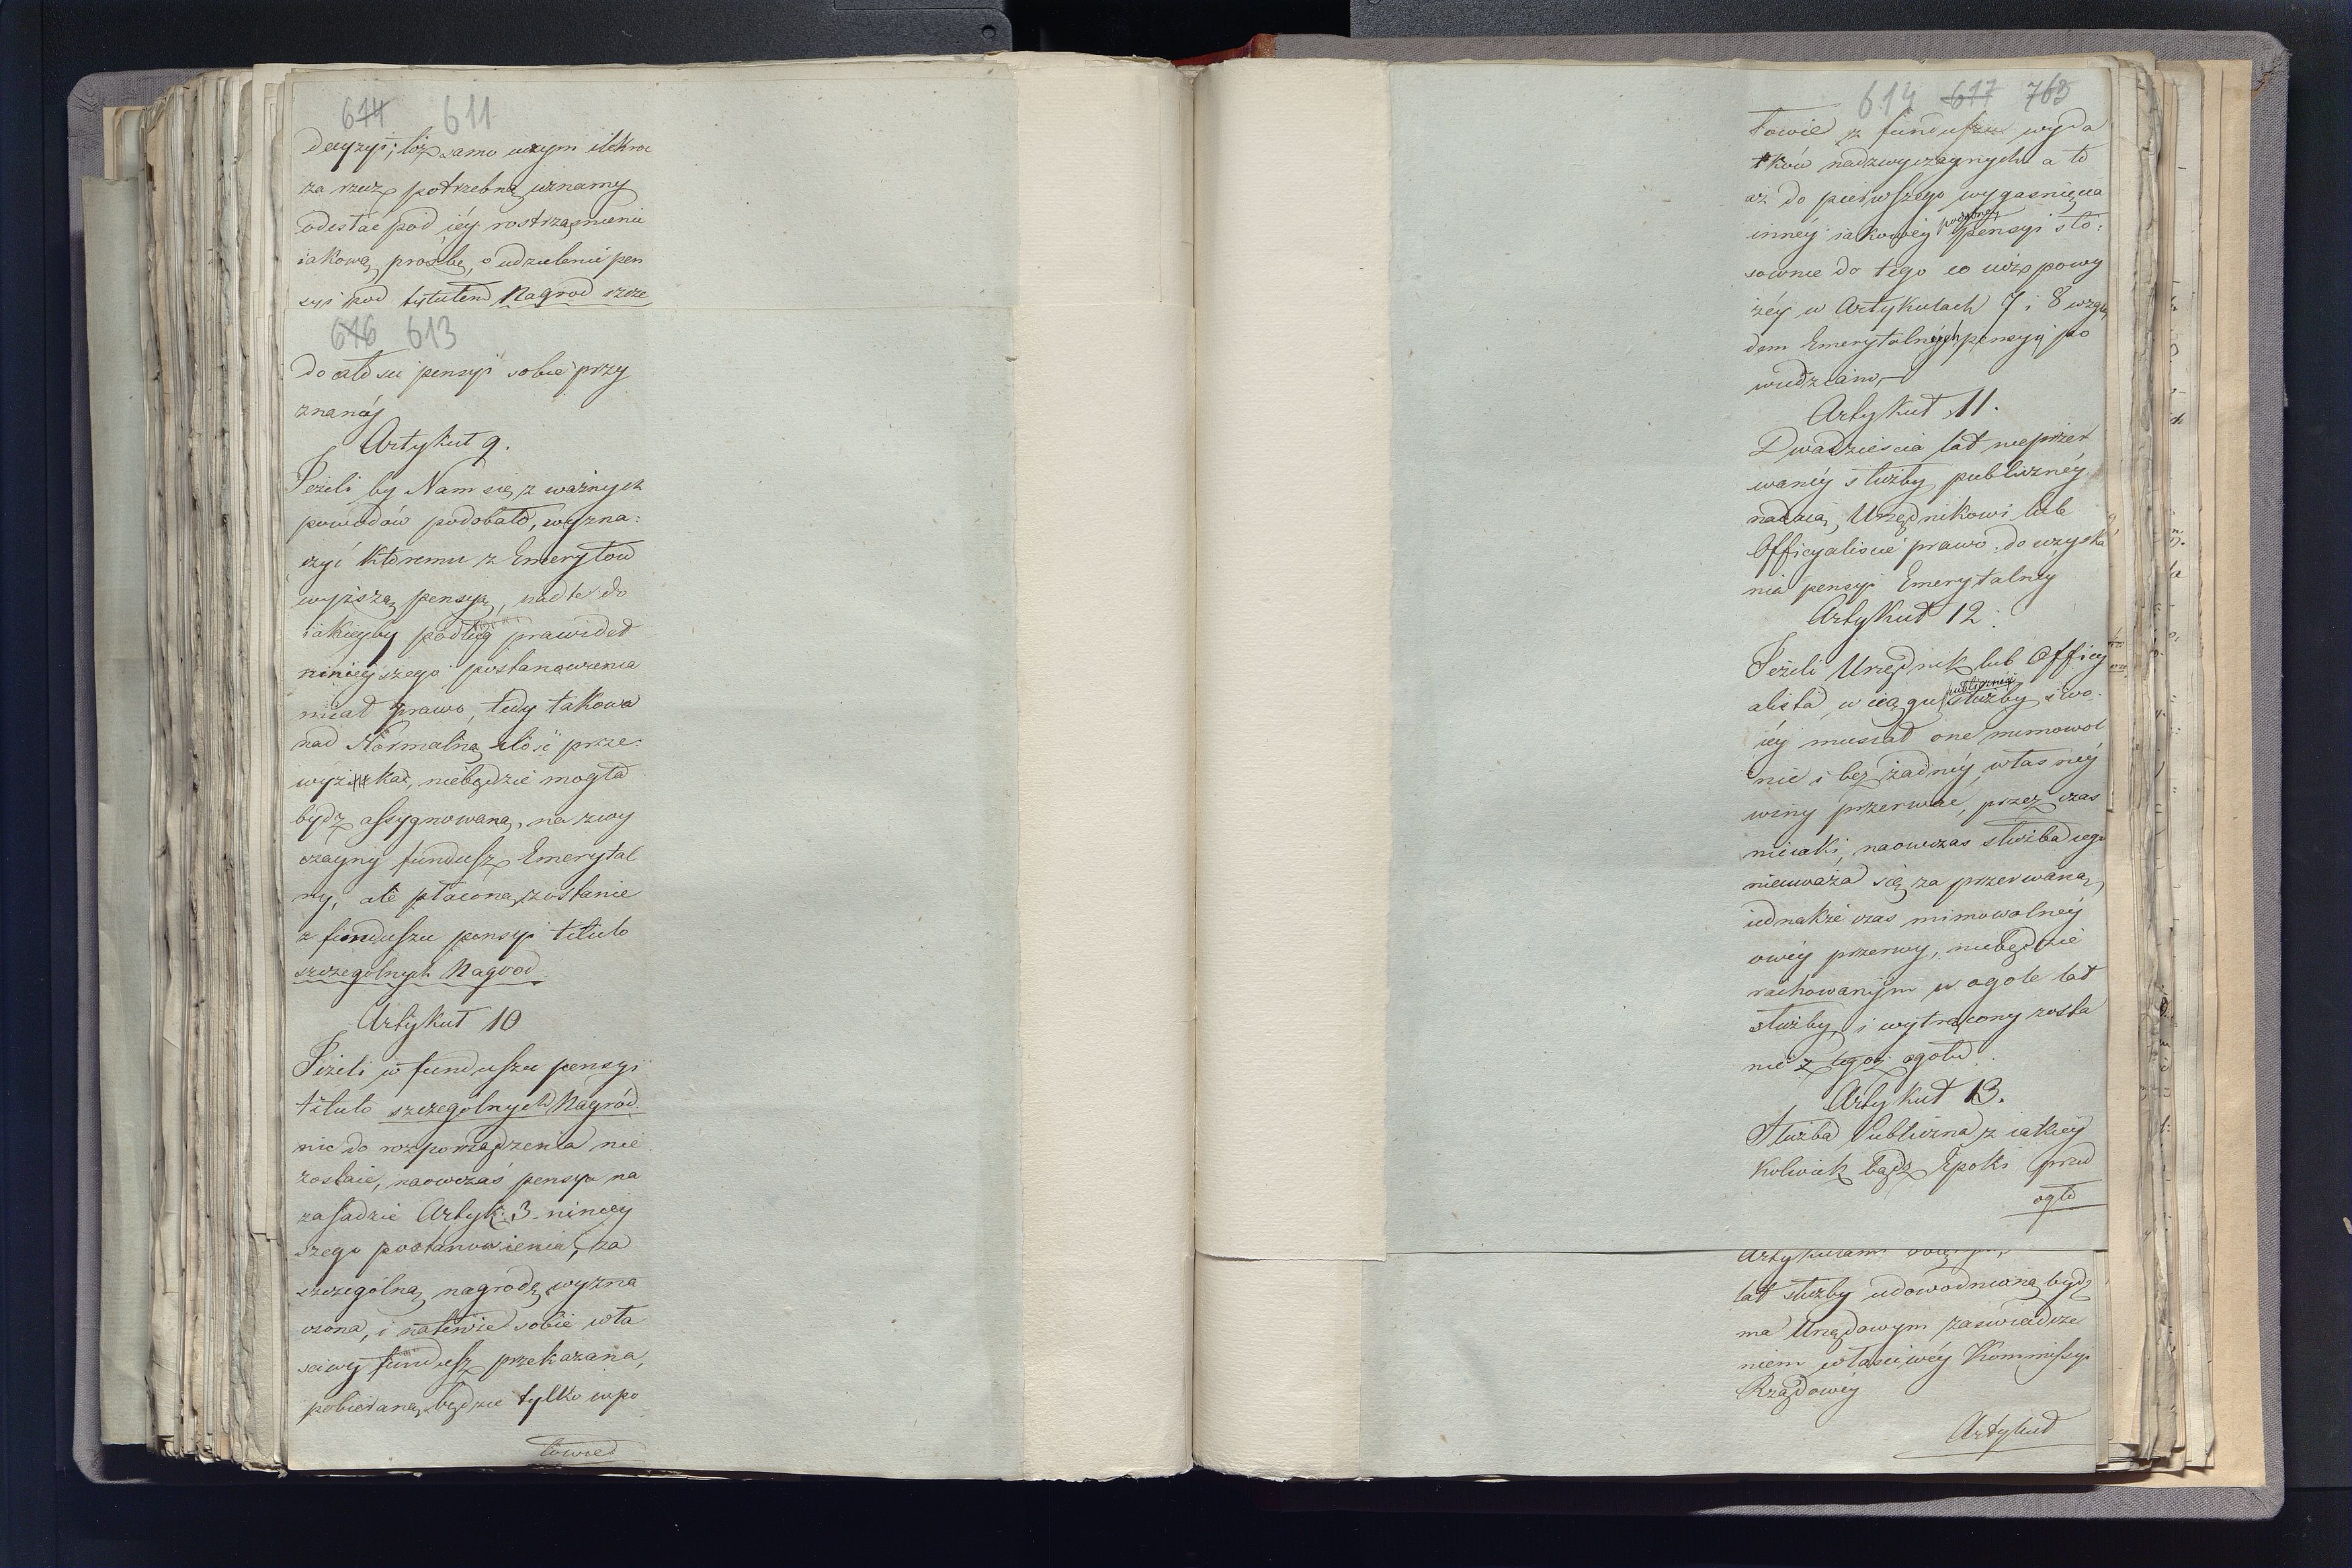 614 611
decyzyi; toż samo uczym ilekroć
za rzecz potrzebną uznamy
odesłać pod iéy rostrząśnienie
iakową prośbę, o udzielenie pen
syi pod tytułem Nagrod szcze
616 613
do ałości pensyi sobie przy
znanéj
Artykuł 9.
Jeżeli by Nam się z ważnych
powodów podobało, wyzna:
czyć któremu z Emerytow
wyższą pensyą, nad te do
iakieyby podług prawideł
ninieyszego postanowienia
miał prawo, tedy takowa
nad Normalną ilość prze:
wyżka, niebędzie mogła
bydź assygnowaną, na zwy
czayny fundusz Emerytal
ny, ale płaconą zostanie
z funduszu pensyi titulo
szczególnych Nagrod.
Artykuł 10
Jeżeli w funduszu pensyi
titulo szczegolnych Nagród
nic do rozporządzenia nie
zostaie, naowczas pensya na
zasadzie Artyk: 3 niniey
szego postanowienia, za
szczególną nagrodę wyzna
czona, i na tenże sobie wła
sciwy fundusz przekazana,
pobieraną będzie tylko w po
łowie
614 617 763
łowie z funduszu wyda
tków nadzwyczaynych a to
aż do pierwszego wygaśnięcia
innéy iakowéy pensyi sto:
sownie do tego co iuż powy
żéy w Artykułach 7 i 8 wzglę
dem Emerytalnych pensyi po
wiedziano,—
Artykuł 11.
Dwadzieścia lat nieprzer
wanéy służby publicznéy
nadaią Urzędnikowi lub
Officyaliście prawo do uzyska
nia pensyi Emerytalney
Artykuł 12.
Jeżeli Urzędnik lub Officy
alista, w ciągu publicznéy służby swo:
iéy musiał one mimowol
nie i bez żadnéy własnéy
winy przerwać, przez czas
nieiaki, naowczas służba iego
nieuważa się za przerwaną,
iednakże czas mimowolnéy
owéy przerwy, niebędzie
rachowanym w ogole lat
służby, i wytrącony zosta
nie z tegoż ogołu.
Artykuł 13.
Służba Publiczna z iakiey
kolwiek bądź Epoki przed
ogło
Artykułami
lat służby udowodnioną bydź
ma Urzędowym zaświadcze
niem właściwéy Kommissyi
Rządowéy
Artykuł